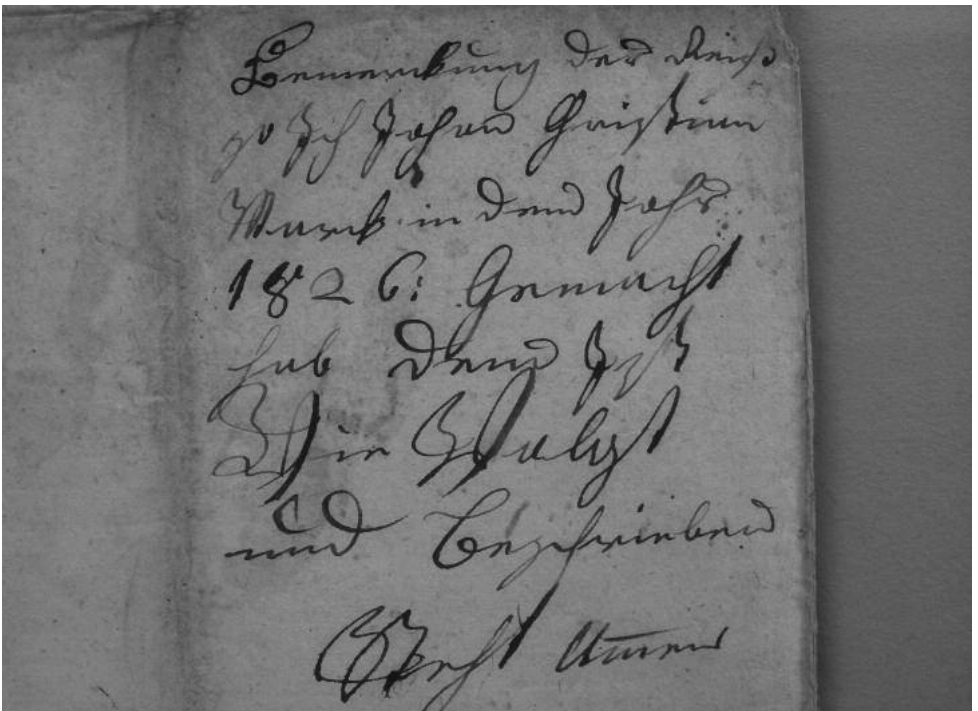 Bemerckung der Reiß
so Ich Johan Christian
Marck in dem Jahr
1826: Gemacht
hab dem Ist
Wie Volgt
und Beschrieben
Steht Amen